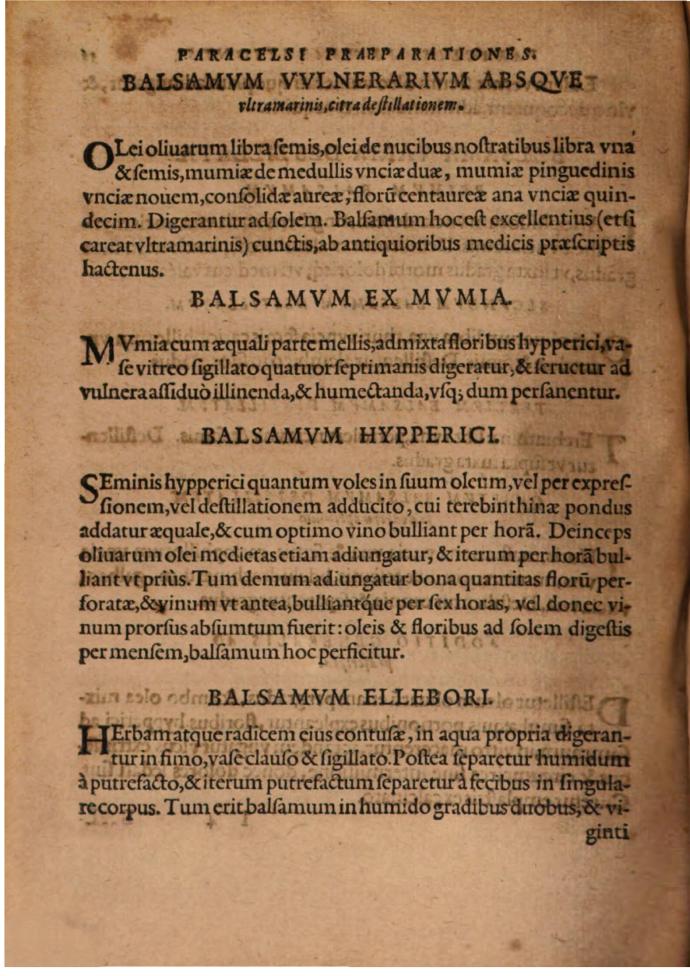 PARACELSI PRAEPARATIONES.
BALSAMVM VVLNERARIVM ABSQVE
vltramarinis, citra destillationem.
OLei oliuarum libra semis, olei de nucibus nostratibus libra vna
& semis, mumiæ de medullis vnciæ duæ, mumiæ pinguedinis
vnciæ nouem, consolidæ aureæ, florū centaureæ ana vnciæ quin-
decim. Digerantur ad solem. Balsamum hoc est excellentius (etsi
careat vltramarinis) cunctis, ab antiquioribus medicis præscriptis
hactenus.
BALSAMVM EX MVMIA.
MVmia cum æquali parte mellis, admixta floribus hypperici, va-
se vitreo sigillato quatuor septimanis digeratur, & seruetur ad
vulnera assiduò illinenda, & humectanda, vsq; dum persanentur.
BALSAMVM HYPPERICI.
SEminis hypperici quantum voles in suum oleum, vel per expres-
sionem, vel destillationem adducito, cui terebinthinæ pondus
addatur æquale, & cum optimo vino bulliant per horā. Deinceps
oliuarum olei medietas etiam adiungatur, & iterum per horā bul-
liant vt priùs. Tum demum adiungatur bona quantitas florū per-
foratæ, & vinum vt antea, bulliantq́ue per sex horas, vel donec vi-
num prorsus absumtum fuerit: oleis & floribus ad solem digestis
per mensem, balsamum hoc perficitur.
BALSAMVM ELLEBORI.
HErbam atque radicem eius contusæ, in aqua propria digeran-
tur in fimo, vase clauso & sigillato. Postea separetur humidum
à putrefacto, & iterum putrefactum separetur à fecibus in singula-
re corpus. Tum erit balsamum in humido gradibus duobus, & vi-
ginti